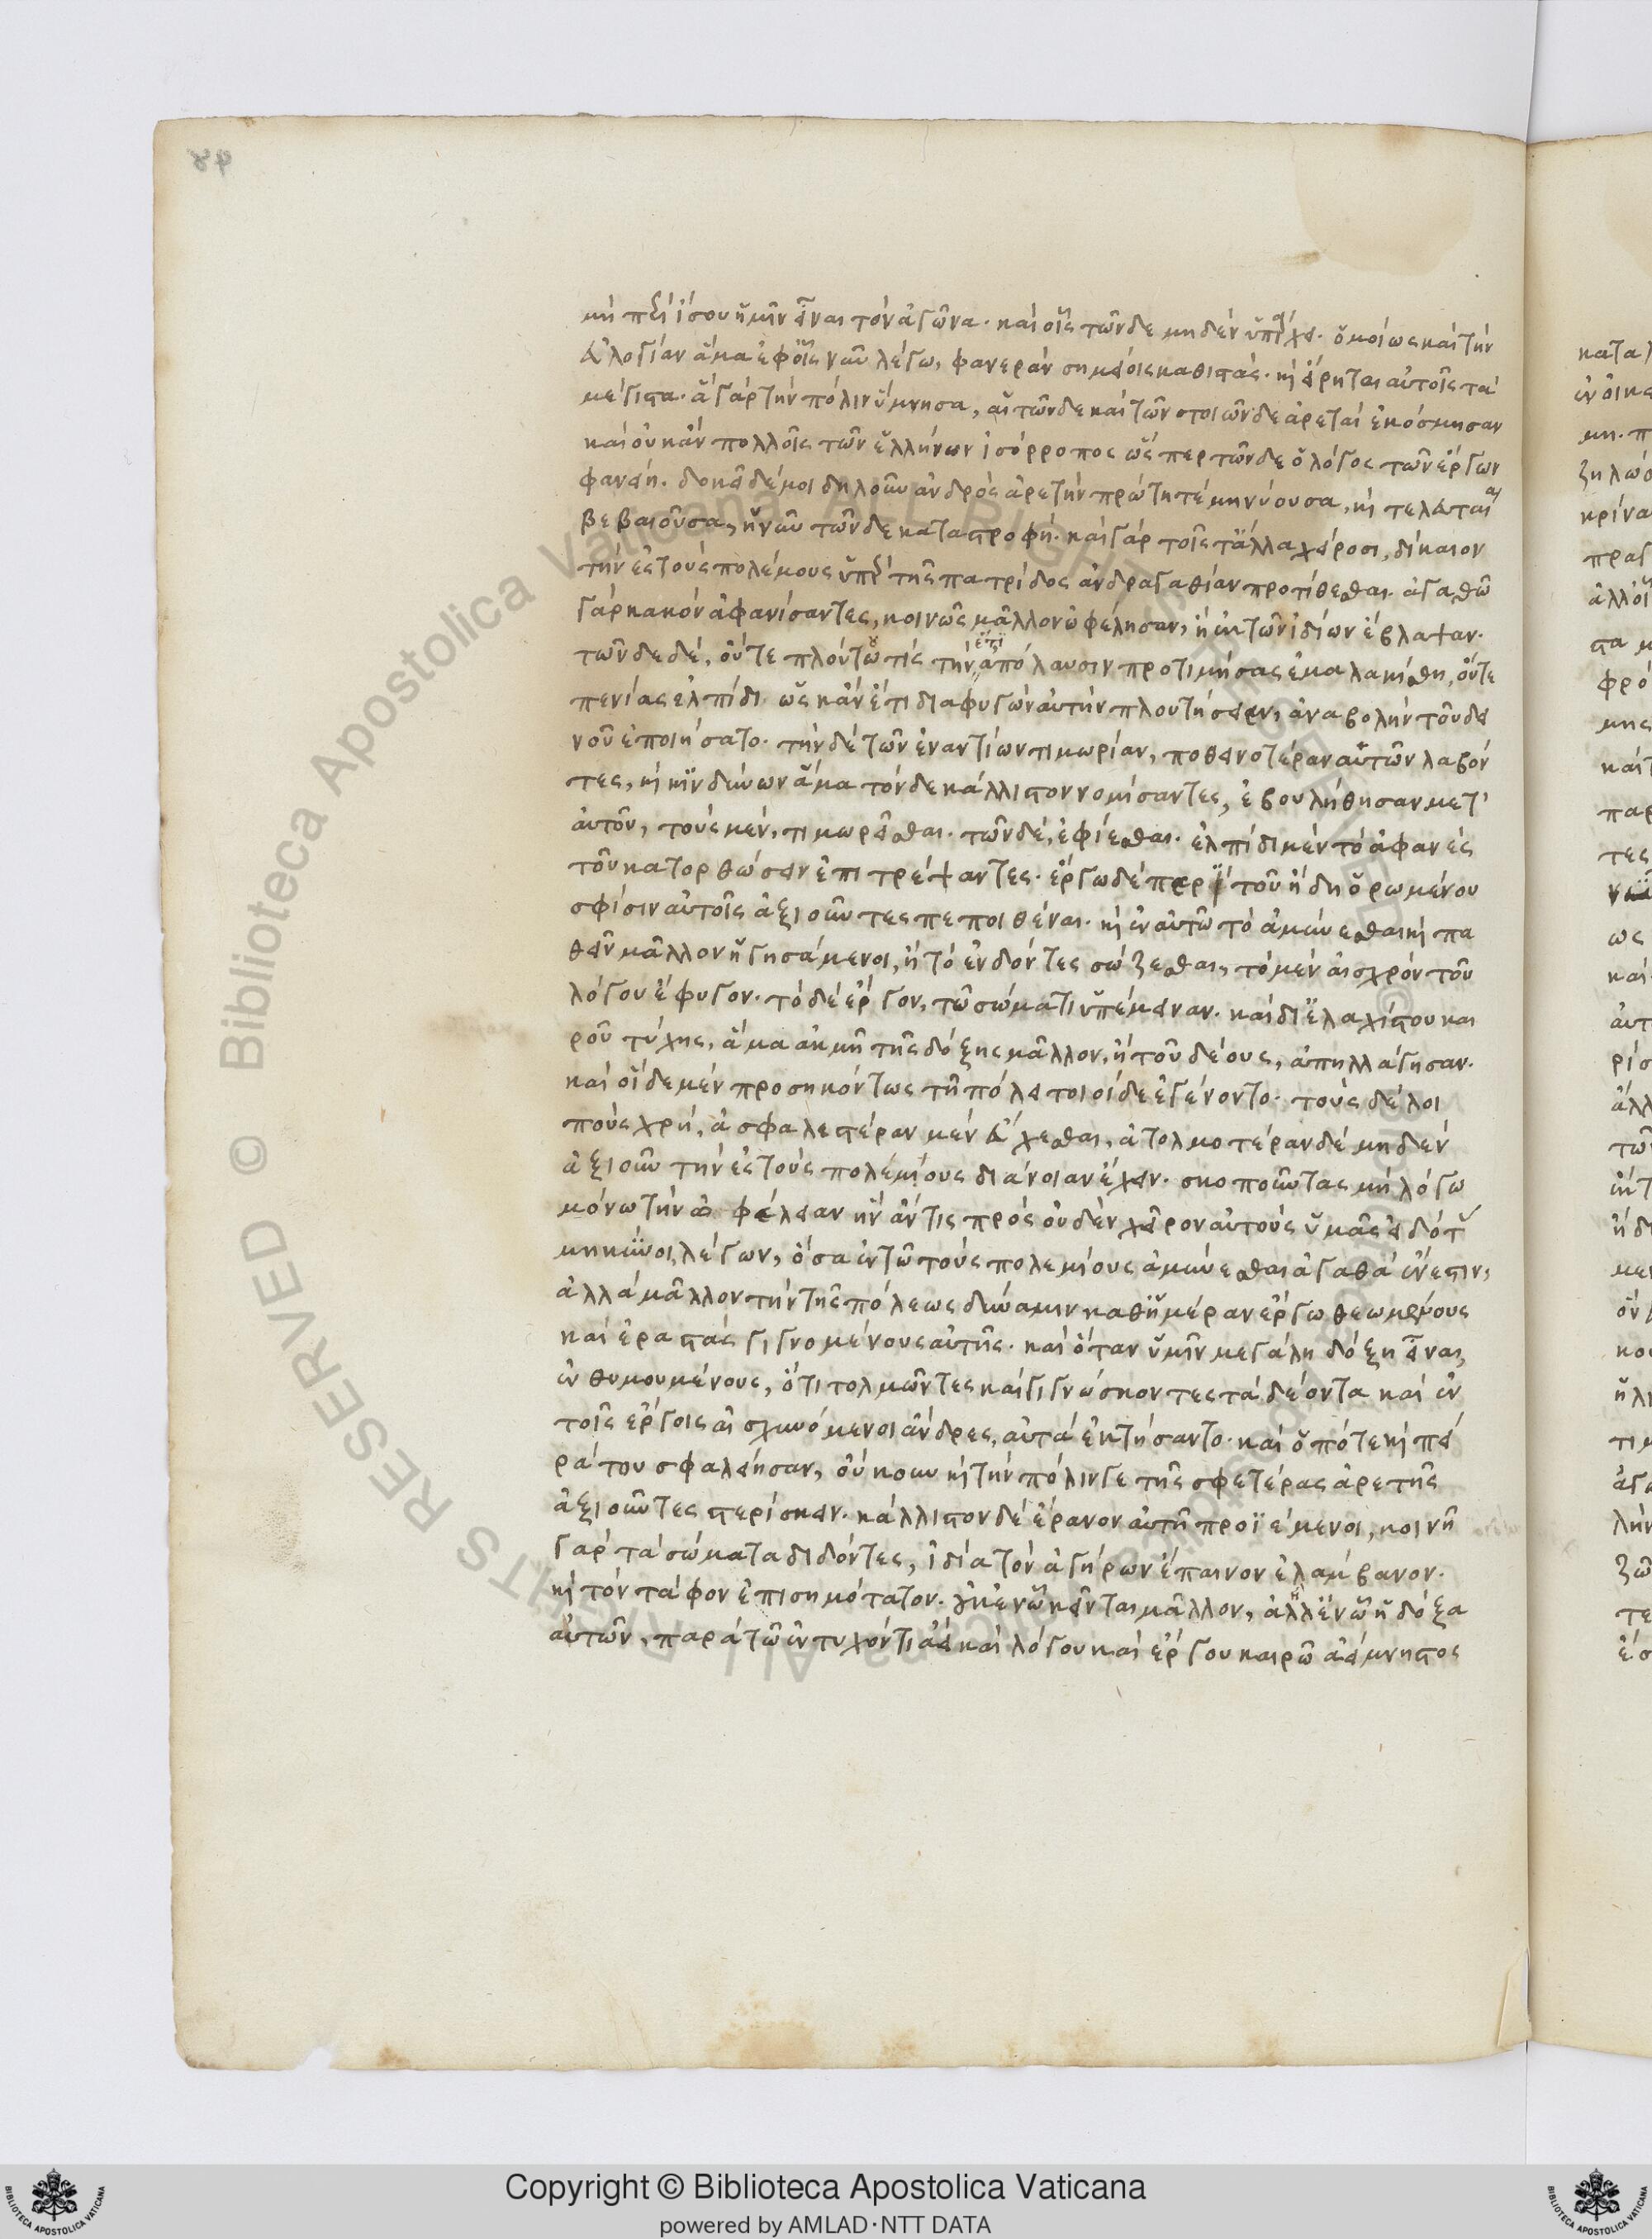 μὴ περὶ ἴσου ἡμῖν εἶναι τὸν ἀγῶνα· καὶ οἷς τῶνδε μηδὲν ὑπάρχει· ὁμοίως καὶ τὴν
εὐλογίαν ἅμα ἐφ' οἷς νῦν λέγω, φανερὰν σημείοις καθιστάς· καὶ εἴρηται αὐτοῖς τὰ
μέγιστα· ἃ γὰρ τὴν πόλιν ὕμνησα, αἱ τῶνδε καὶ τῶν τοιῶνδε ἀρεταὶ ἐκόσμησαν
καὶ οὐκ ἂν πολλοῖς τῶν ἑλλήνων ἰσόρροπος ὥσπερ τῶνδε ὁ λόγος τῶν ἔργων
φανείη· δοκεῖ δέ μοι δηλοῦν ἀνδρὸς ἀρετὴν πρώτη τὲ μηνύουσα, καὶ τελευταία
βεβαιοῦσα, ἡ νῦν τῶνδε καταστροφή· καὶ γὰρ τοῖς τἄλλα χείροσι, δίκαιον
τὴν ἐς τοὺς πολέμους ὑπὲρ τῆς πατρίδος ἀνδραγαθίαν προτίθεσθαι· ἀγαθῶ
γὰρ κακὸν ἀφανίσαντες, κοινῶς μᾶλλον ὠφέλησαν, ἢ ἐκ τῶν ἰδίων ἔβλαψαν·
τῶνδε δὲ, οὔτε πλούτου τὶς τὴν ἔτι ἀπόλαυσιν προτιμήσας ἐμαλακίσθη, οὔτε
πενίας ἐλπίδι ὡς κἂν ἔτι διαφυγὼν αὐτὴν πλουτήσειεν, ἀναβολὴν τοῦ δει
νοῦ ἐποιήσατο· τὴν δὲ τῶν ἐναντίων τιμωρίαν, ποθεινοτέραν αὐτῶν λαβόν
τες, καὶ κινδύνων ἅμα τόνδε κάλλιστον νομίσαντες, ἐβουλήθησαν μετ'
αὐτοῦ, τοὺς μὲν, τιμωρεῖσθαι· τῶν δὲ, ἐφίεσθαι· ἐλπίδι μὲν τὸ ἀφανὲς
τοῦ κατορθώσειν ἐπιτρέψαντες· ἔργω δὲ περὶ τοῦ ἤδη ὁρωμένου
σφίσιν αὐτοῖς ἀξιοῦντες πεποιθέναι· καὶ ἐν αὐτῶ τὸ ἀμύνεσθαι καὶ πα
θεῖν μᾶλλον ἡγησάμενοι, ἢ τὸ ἐνδόντες σώζεσθαι, τὸ μὲν αἰσχρὸν τοῦ
λόγου ἔφυγον· τὸ δὲ ἔργον, τῶ σώματι ὑπέμειναν· καὶ δι' ἐλαχίστου και
ροῦ τύχης, ἅμα ἀκμῆ τῆς δόξης μᾶλλον, ἢ τοῦ δέους, ἀπηλλάγησαν·
καὶ οἵδε μὲν προσηκόντως τῆ πόλει τοιοίδε ἐγένοντο· τοὺς δὲ λοι
ποὺς χρὴ, ἀσφαλεστέραν μὲν εὔχεσθαι, ἀτολμοτέραν δὲ μηδὲν
ἀξιοῦν τὴν ἐς τοὺς πολεμίους διάνοιαν ἔχειν· σκοποῦντας μὴ λόγω
μόνω τὴν ὠφέλειαν ἣν ἄν τις πρὸς οὐδὲν χεῖρον αὐτοὺς ὑμᾶς εἰδότας
μηκύνοι λέγων, ὅσα ἐν τῶ τοὺς πολεμίους ἀμύνεσθαι ἀγαθὰ ἔνεστιν,
ἀλλὰ μᾶλλον τὴν τῆς πόλεως δύναμιν καθ' ἡμέραν ἔργω θεωμένους
καὶ ἐραστὰς γιγνομένους αὐτῆς· καὶ ὅταν ὑμῖν μεγάλη δόξη εἶναι,
ἐνθυμουμένους, ὅτι τολμῶντες καὶ γιγνώσκοντες τὰ δέοντα καὶ ἐν
τοῖς ἔργοις αἰσχυνόμενοι ἄνδρες, αὐτὰ ἐκτήσαντο· καὶ ὁπότε καὶ πεί
ρα του σφαλείησαν, οὔκουν καὶ τὴν πόλιν γε τῆς σφετέρας ἀρετῆς
ἀξιοῦντες στερίσκειν· κάλλιστον δὲ ἔρανον αὐτῆ προϊέμενοι, κοινῆ
γὰρ τὰ σώματα διδόντες, ἰδία τὸν ἀγήρων ἔπαινον ἐλάμβανον·
καὶ τὸν τάφον ἐπισημότατον· οὐκ ἐν ᾧ κεῖνται μᾶλλον, ἀλλ' ἐν ᾧ ἡ δόξα
αὐτῶν, παρὰ τῶ ἐντυχόντι ἀεὶ καὶ λόγου καὶ ἔργου καιρῶ ἀείμνηστος
Copyright © Biblioteca Apostolica Vaticana
powered by AMLAD·NTT DATA